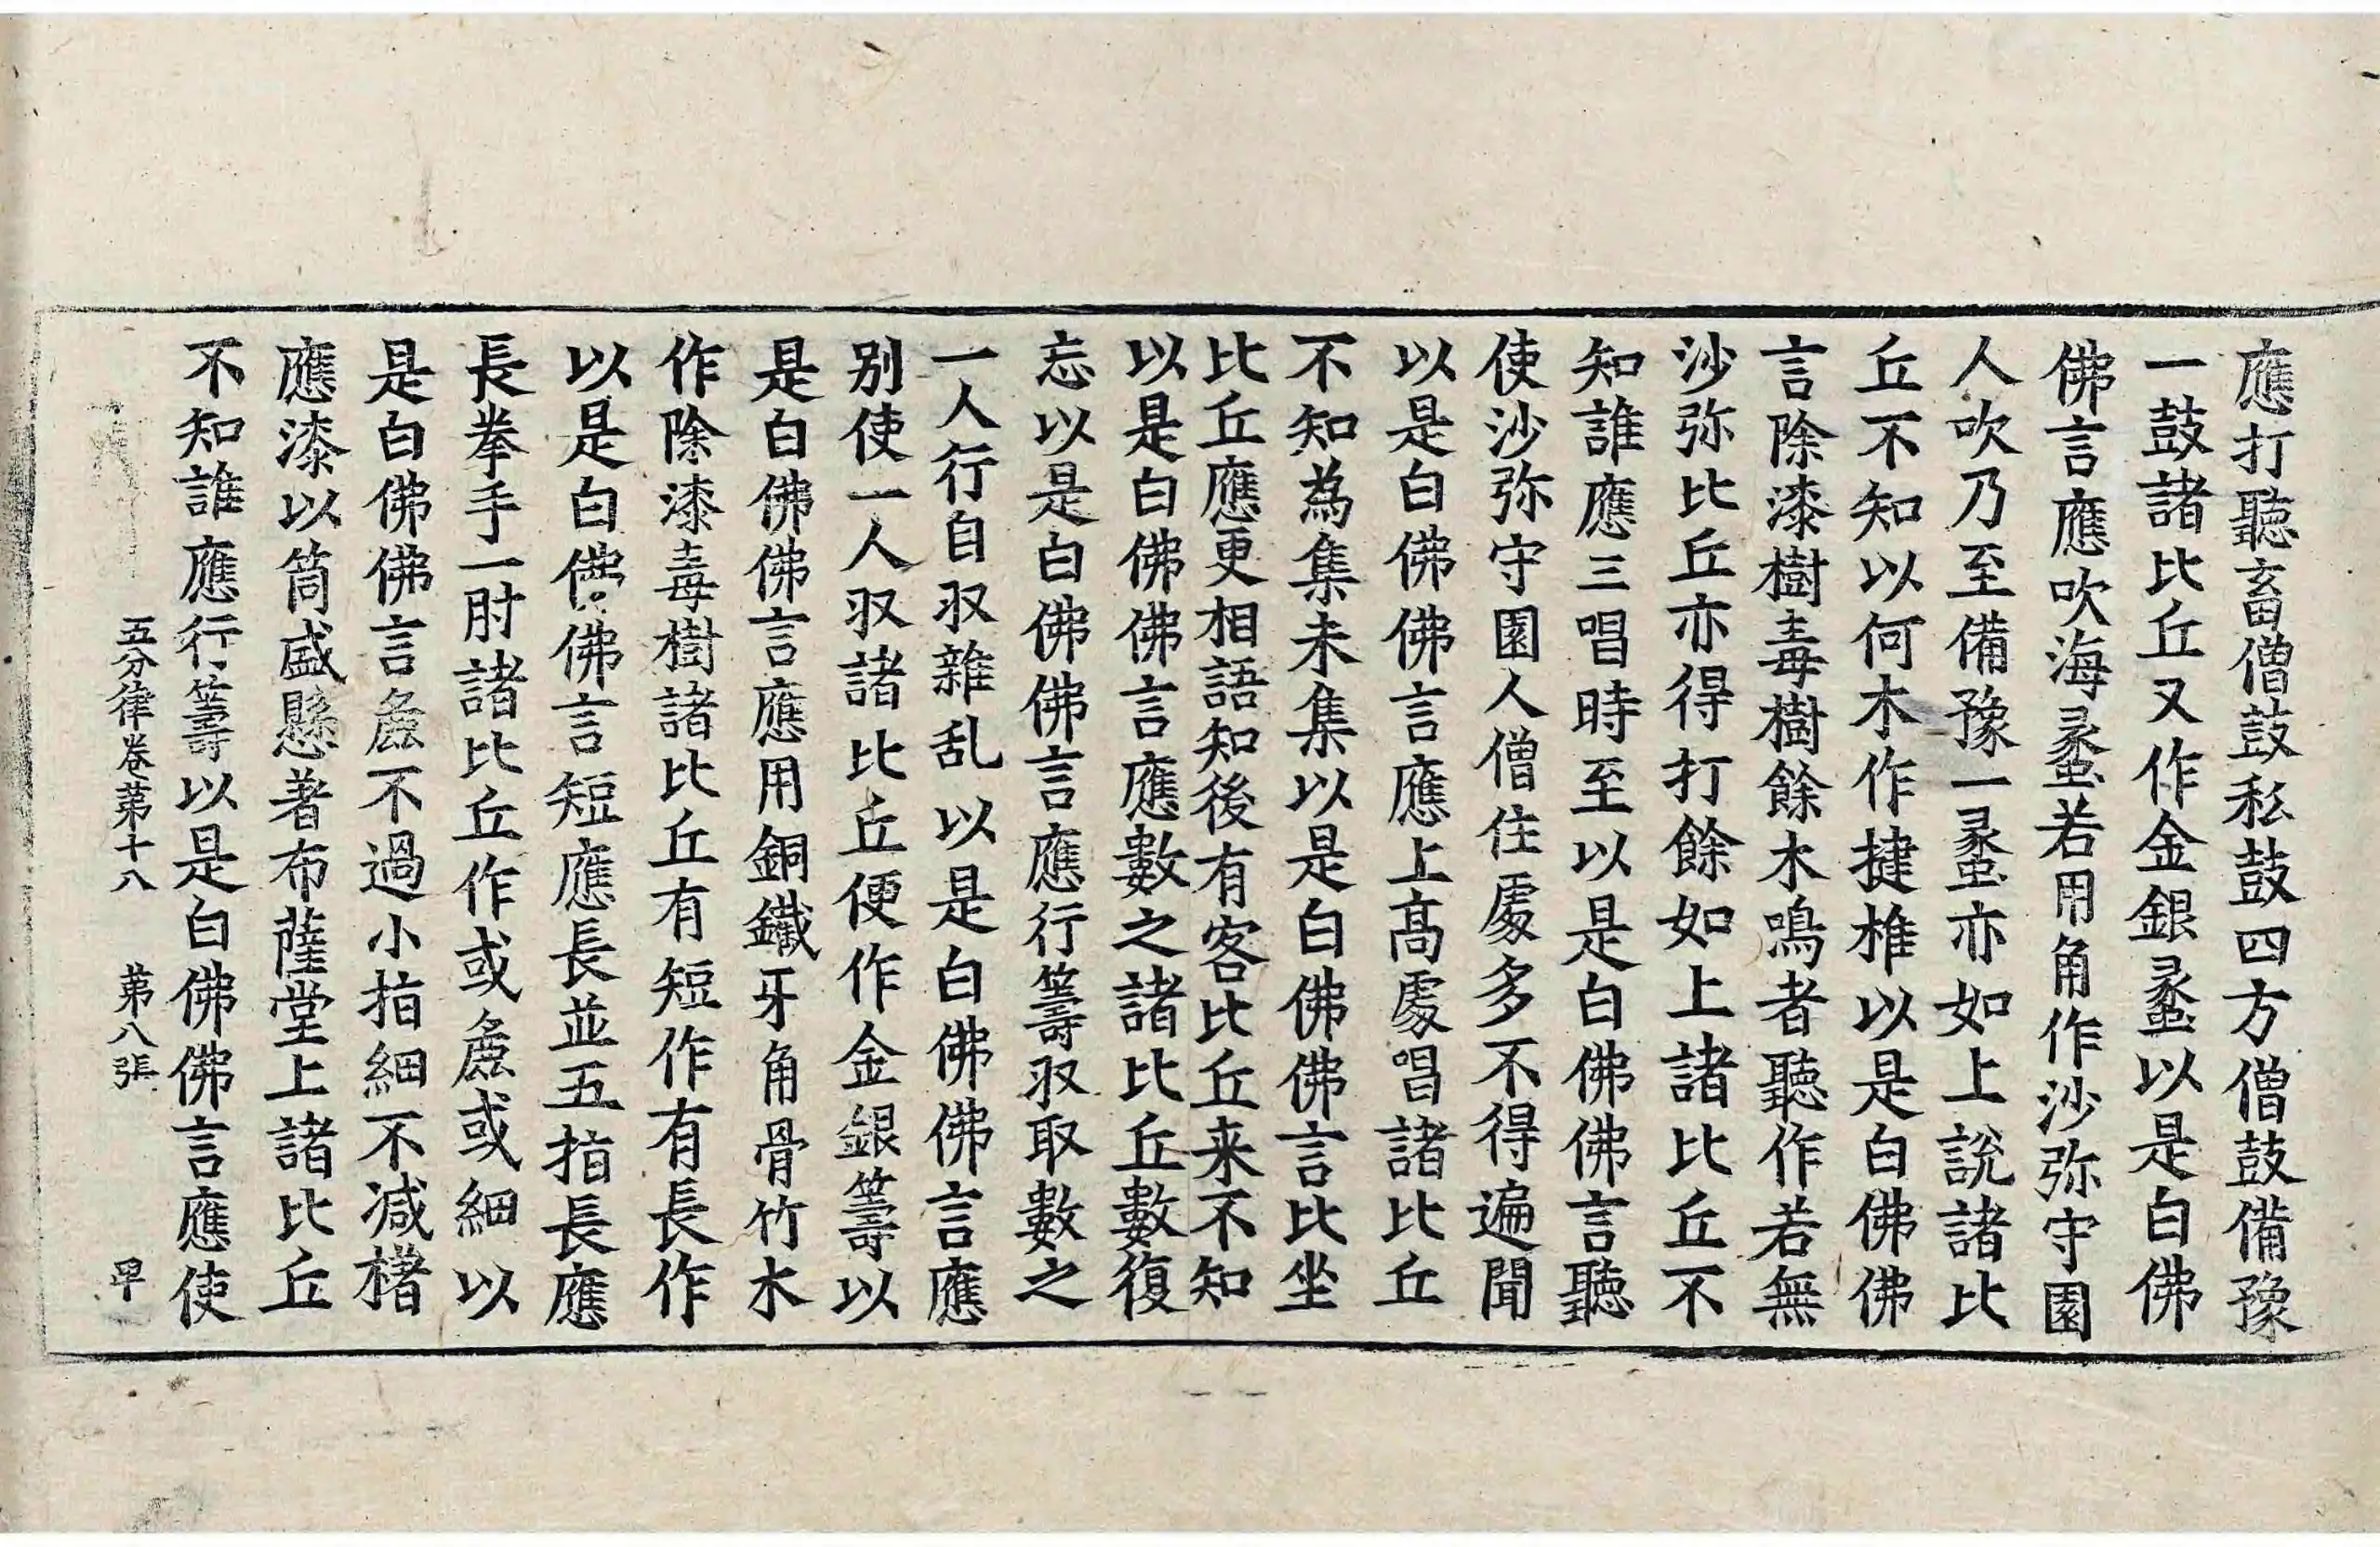 應打聽畜僧鼓私鼓四方僧鼓備豫
一鼓諸比丘又作金銀蠡以是白佛
佛言應吹海蠡若用角作沙弥守園
人吹乃至備豫一蠡亦如上說諸比
丘不知以何木作揵椎以是白佛佛
言除漆樹毒樹餘木鳴者聽作若無
沙弥比丘亦得打餘如上諸比丘不
知誰應三唱時至以是白佛佛言聽
使沙弥守園人僧住處多不得遍聞
以是白佛佛言應上髙處唱諸比丘
不知為集未集以是白佛佛言比坐
比丘應更相語知後有客比丘来不知
以是白佛佛言應數之諸比丘數復
忘以是白佛佛言應行籌収取數之
一人行自収雜乱以是白佛佛言應
别使一人収諸比丘便作金銀籌以
是白佛佛言應用銅鐵牙角骨竹木
作除漆毒樹諸比丘有短作有長作
以是白佛佛言短應長並五指長應
長拳手一肘諸比丘作或麁或細以
是白佛佛言麁不過小指細不減櫡
應漆以筒盛懸著布薩堂上諸比丘
不知誰應行籌以是白佛佛言應使
五分律卷苐十八 苐八張 㽞